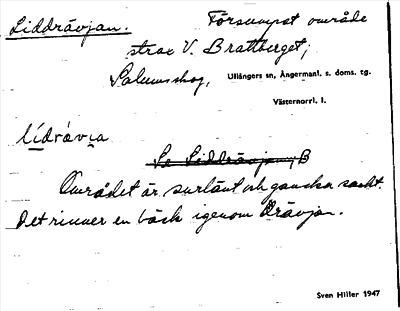 Liddrävjan. Försumpat område
strax V. Brattberget,
Salumsskog, Ullångers sn, Ångermanl. s. doms. tg.
Västernorrl. l.
lídrávja
Se Liddrävjan, B
Området är surlänt och ganska sankt.
Det rinner en bäck igenom Drävjan.
Sven Hiller 1947